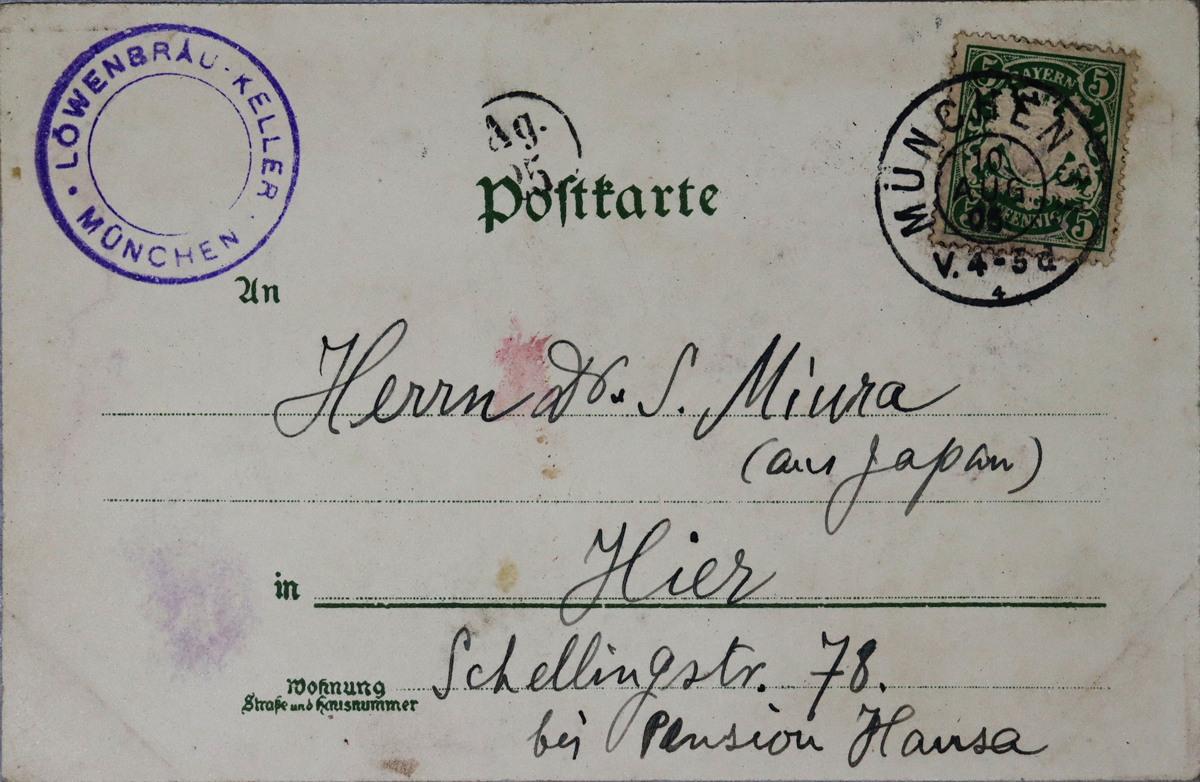 LÖWENBRÄU-KELLER
· MÜNCHEN ·
Ag.
05
Postkarte
5 BAYERN 5
5 PFENNIG 5
MÜNCHEN
10
AUG
05
V. 4-5 d
4
An
Herrn Dr. S. Miura
(aus Japan)
in Hier
Wohnung Schellingstr. 78.
Straße und Hausnummer
bei Pension Hansa